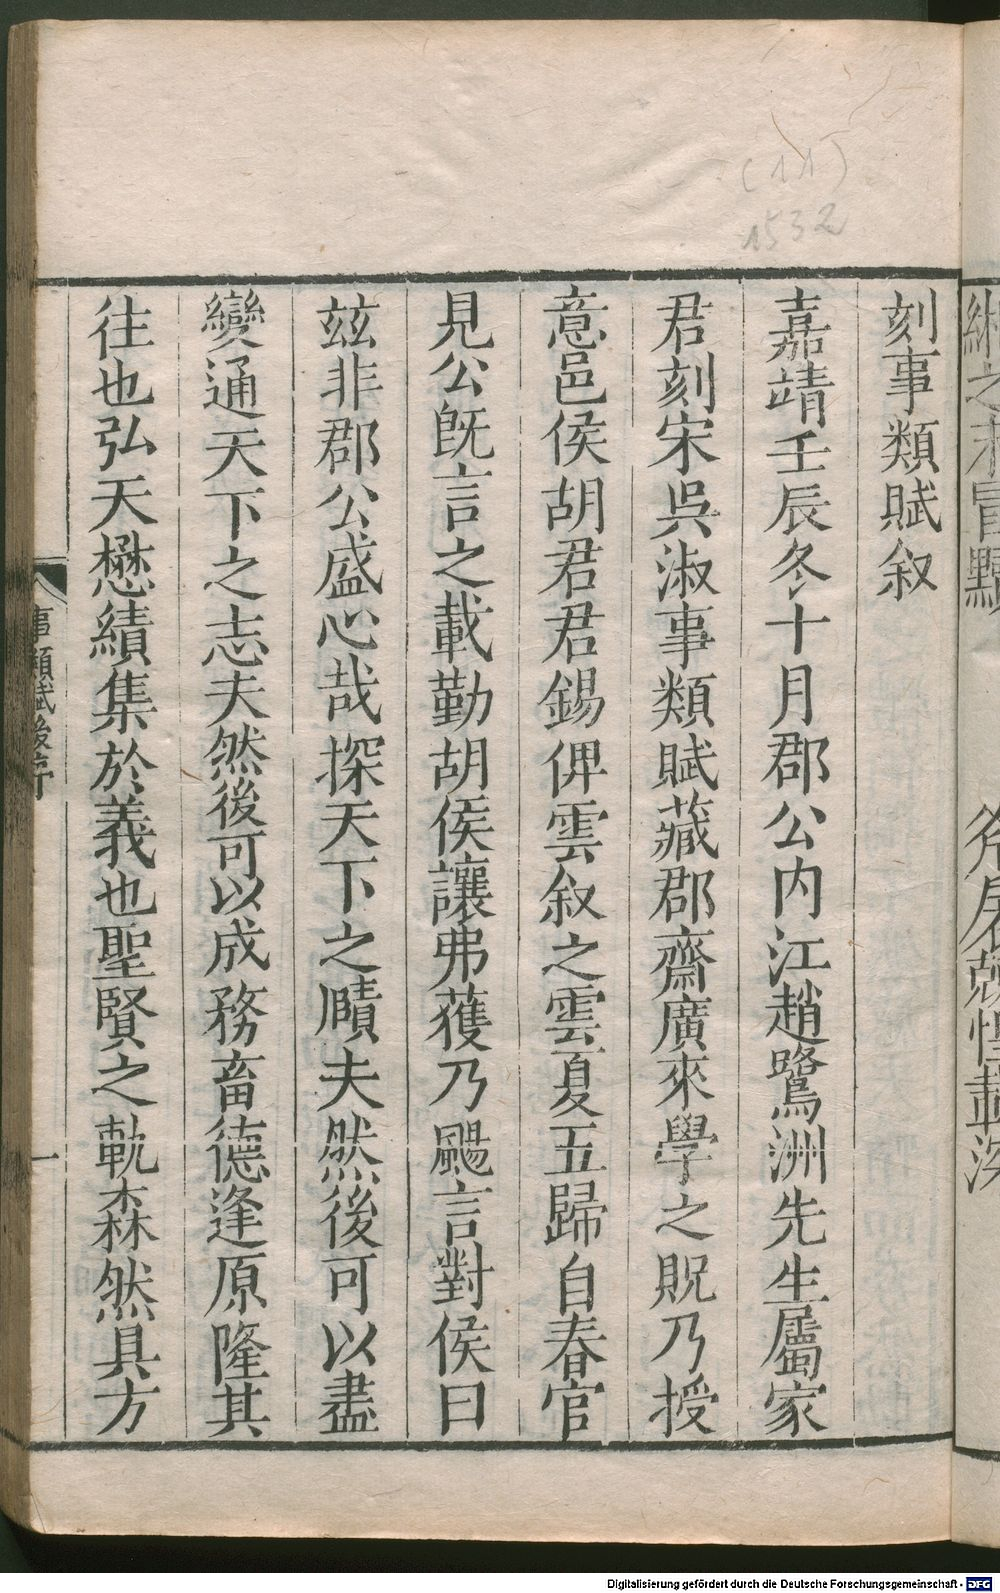 (11)
1532
刻事類賦叙
嘉靖壬辰冬十月郡公内江趙鷺洲先生屬家
君刻宋吳淑事類賦藏郡齋廣來學之貺乃授
意邑侯胡君君錫俾雲叙之雲夏五歸自春官
見公旣言之載勤胡侯讓弗獲乃颺言對侯曰
兹非郡公盛心哉探天下之賾夫然後可以盡
變通天下之志夫然後可以成務畜德逢原隆其
往也弘天懋績集於義也聖賢之軌森然具方
事類賦後序
一
Digitalisierung gefördert durch die Deutsche Forschungsgemeinschaft - DFG